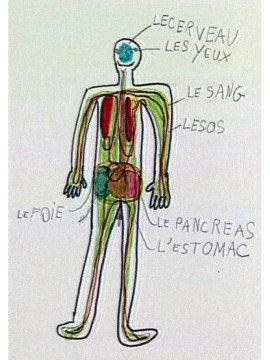 LECERVEAU
LES YEUX
LE SANG
LESOS
LE FOIE
LE PANCREAS
L'ESTOMAC